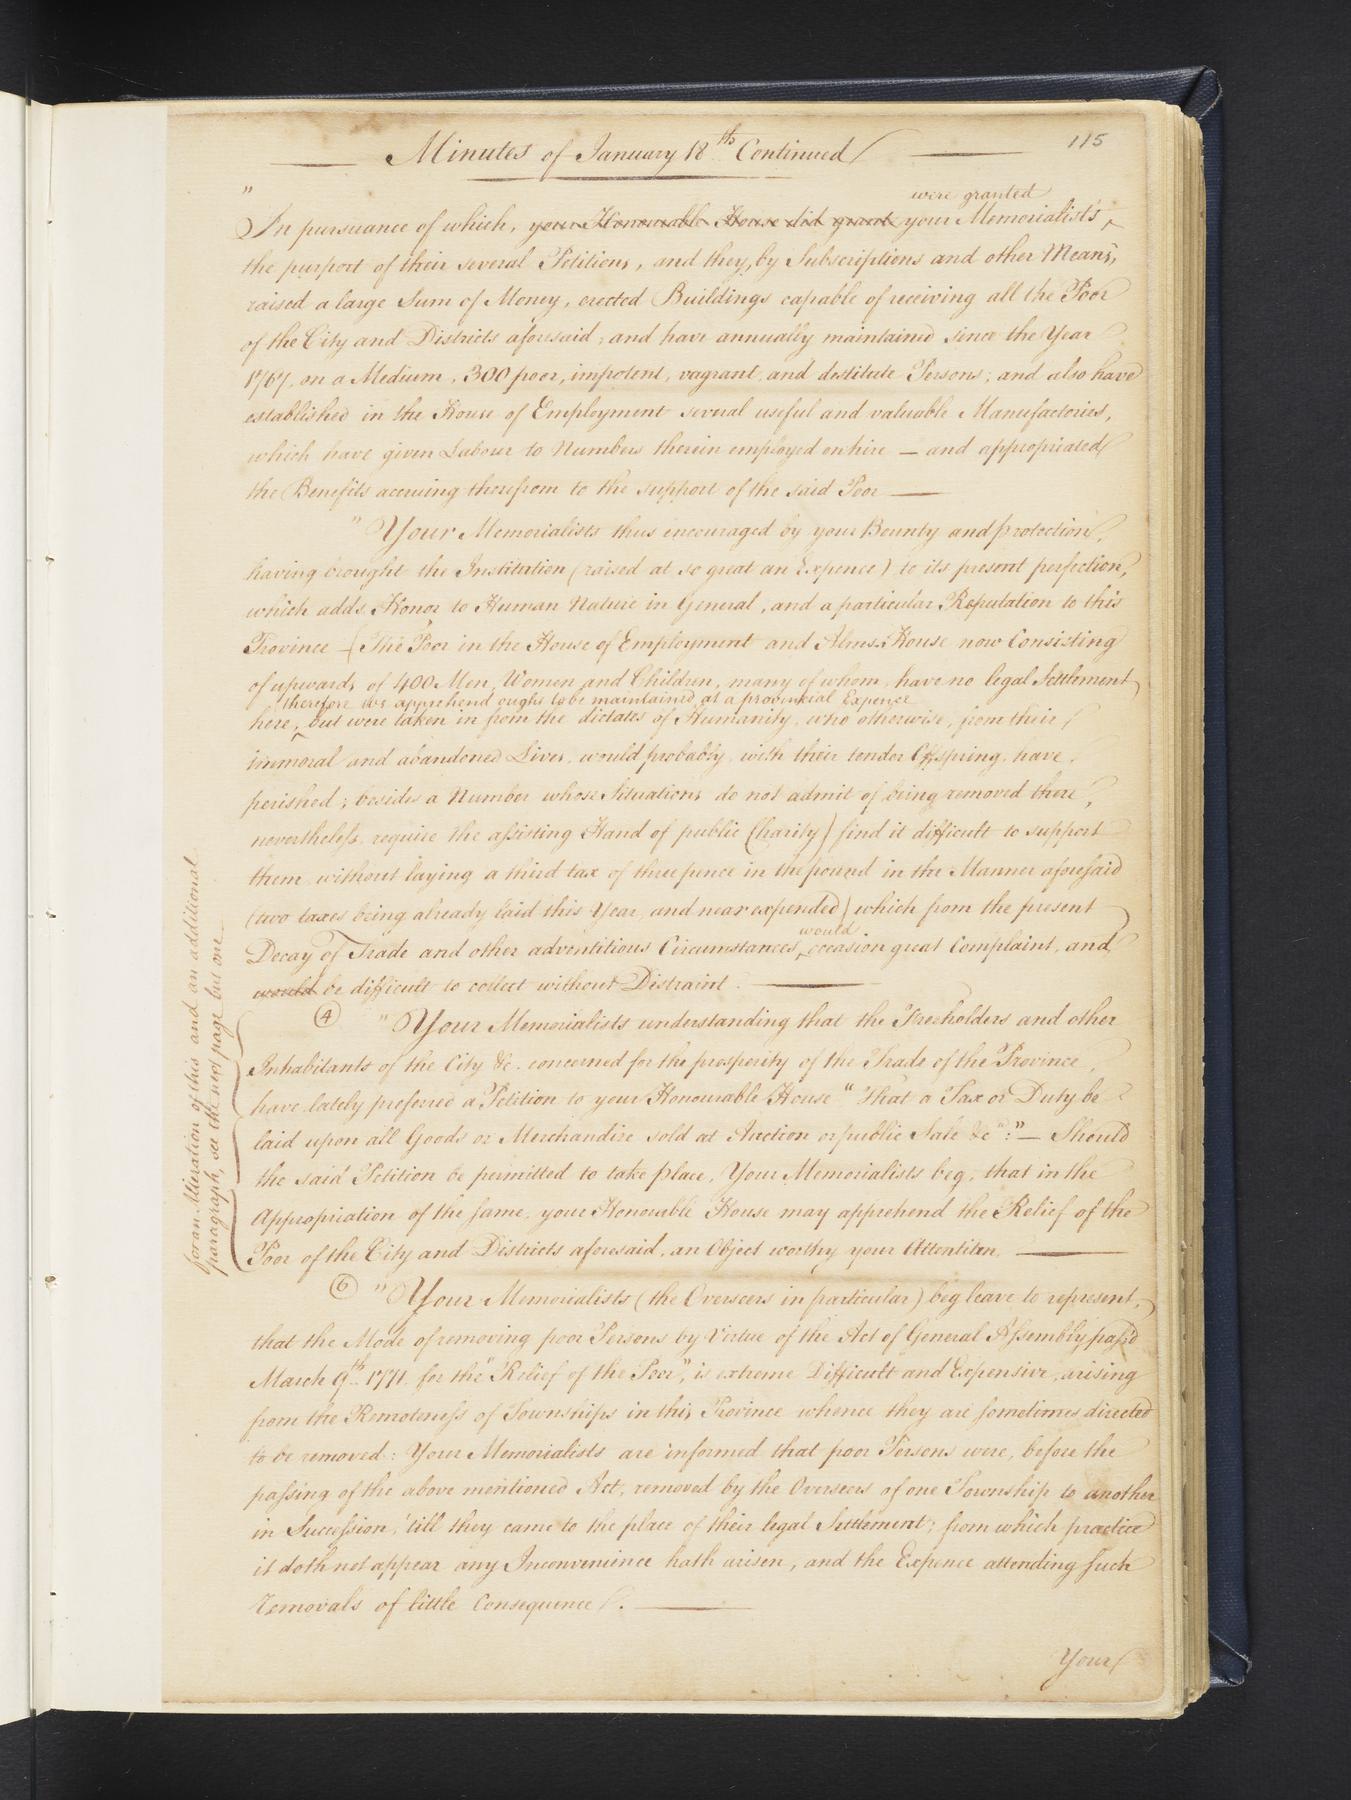 Minutes of January 18th Continued
115
"
were granted
In pursuance of which, your Honourable House did grant your Memorialist's
the purport of their several Petitions, and they, by Subscriptions and other Means,
raised a large Sum of Money, erected Buildings capable of receiving all the Poor
of the City and Districts aforesaid; and have annually maintained since the Year
1767, on a Medium, 300 poor, impotent, vagrant, and destitute Persons; and also have
established in the House of Employment several useful and valuable Manufactories,
which have given Labour to Numbers therein employed on hire — and appropriated
the Benefits accruing therefrom to the support of the said Poor —
" Your Memorialists thus encouraged by your Bounty and protection,
having brought the Institution (raised at so great an Expence) to its present perfection,
which adds Honor to Human Nature in General, and a particular Reputation to this
Province – (The Poor in the House of Employment and Alms House now Consisting
of upwards of 400 Men, Women and Children, many of whom, have no legal Settlement
therefore we apprehend ought to be maintained at a provincial Expence
here, but were taken in from the dictates of Humanity, who otherwise, from their
immoral and abandoned Lives, would probably, with their tender Offspring, have
perished; besides a Number whose Situations do not admit of being removed there,
nevertheless, require the assisting Hand of public Charity) find it difficult to support
them without laying a third tax of three pence in the pound in the Manner aforesaid
(two taxes being already laid this Year, and near expended) which from the present
would
Decay of Trade and other adventitious Circumstances, occasion great Complaint, and
would be difficult to collect without Distraint. —
4 " Your Memorialists understanding that the Freeholders and other
Inhabitants of the City &c. concerned for the prosperity of the Trade of the Province,
have lately preferred a Petition to your Honourable House "That a Tax or Duty be
laid upon all Goods or Merchandize sold at Auction or public Sale &c":" — Should
the said Petition be permitted to take place, Your Memorialists beg, that in the
Appropriation of the same, your Honourable House may apprehend the Relief of the
Poor of the City and Districts aforesaid, an Object worthy your Attention. —
for an Alteration of this and an additional
paragraph, see the next page but one
6 " Your Memorialists (the Overseers in particular) beg leave to represent,
that the Mode of removing poor Persons by Virtue of the Act of General Assembly pass'd
March 9th 1771. for the "Relief of the Poor", is extreme Difficult and Expensive, arising
from the Remoteness of Townships in this Province whence they are sometimes directed
to be removed: Your Memorialists are informed that poor Persons were, before the
passing of the above mentioned Act, removed by the Overseers of one Township to another
in Succession, 'till they came to the place of their legal Settlement; from which practice
it doth not appear any Inconvenience hath arisen, and the Expence attending such
removals of little Consequence. —
Your